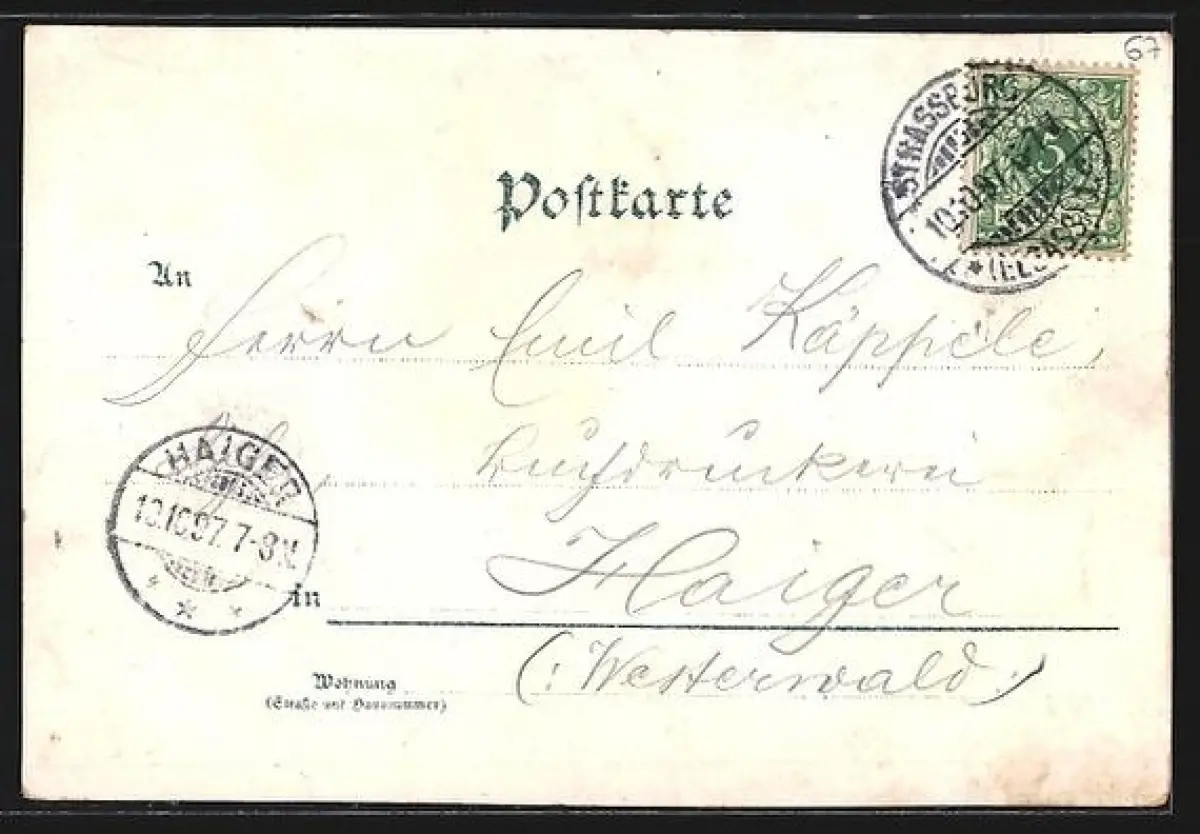 67
STRASSBURG
10.10.97.
* (ELSASS)
5
Postkarte
An
Herrn Emil Käppele,
Buchdruckerei
HAIGER
10.10.97. 7-8 N.
in Haiger
(: Westerwald :)
Wohnung
(Straße und Hausnummer)